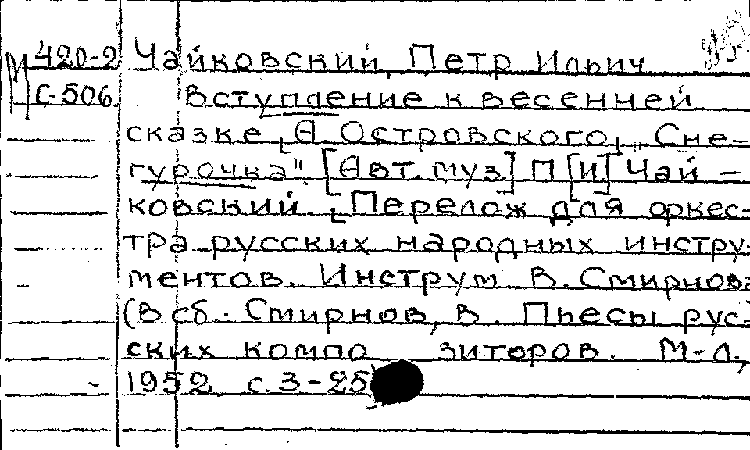 М 420-2 Чайковский, Петр Ильич
С-506 Вступление к весенней
сказке [А. Островского] „Сне-
гурочка" [Авт. муз.] П. [И.] Чай-
ковский. [Перелож. для оркес-
тра русских народных инстру-
ментов. Инструм. В. Смирнова
(В сб. Смирнов, В. Пьесы рус-
ских композиторов. М-Л,
1952 с. 3-25